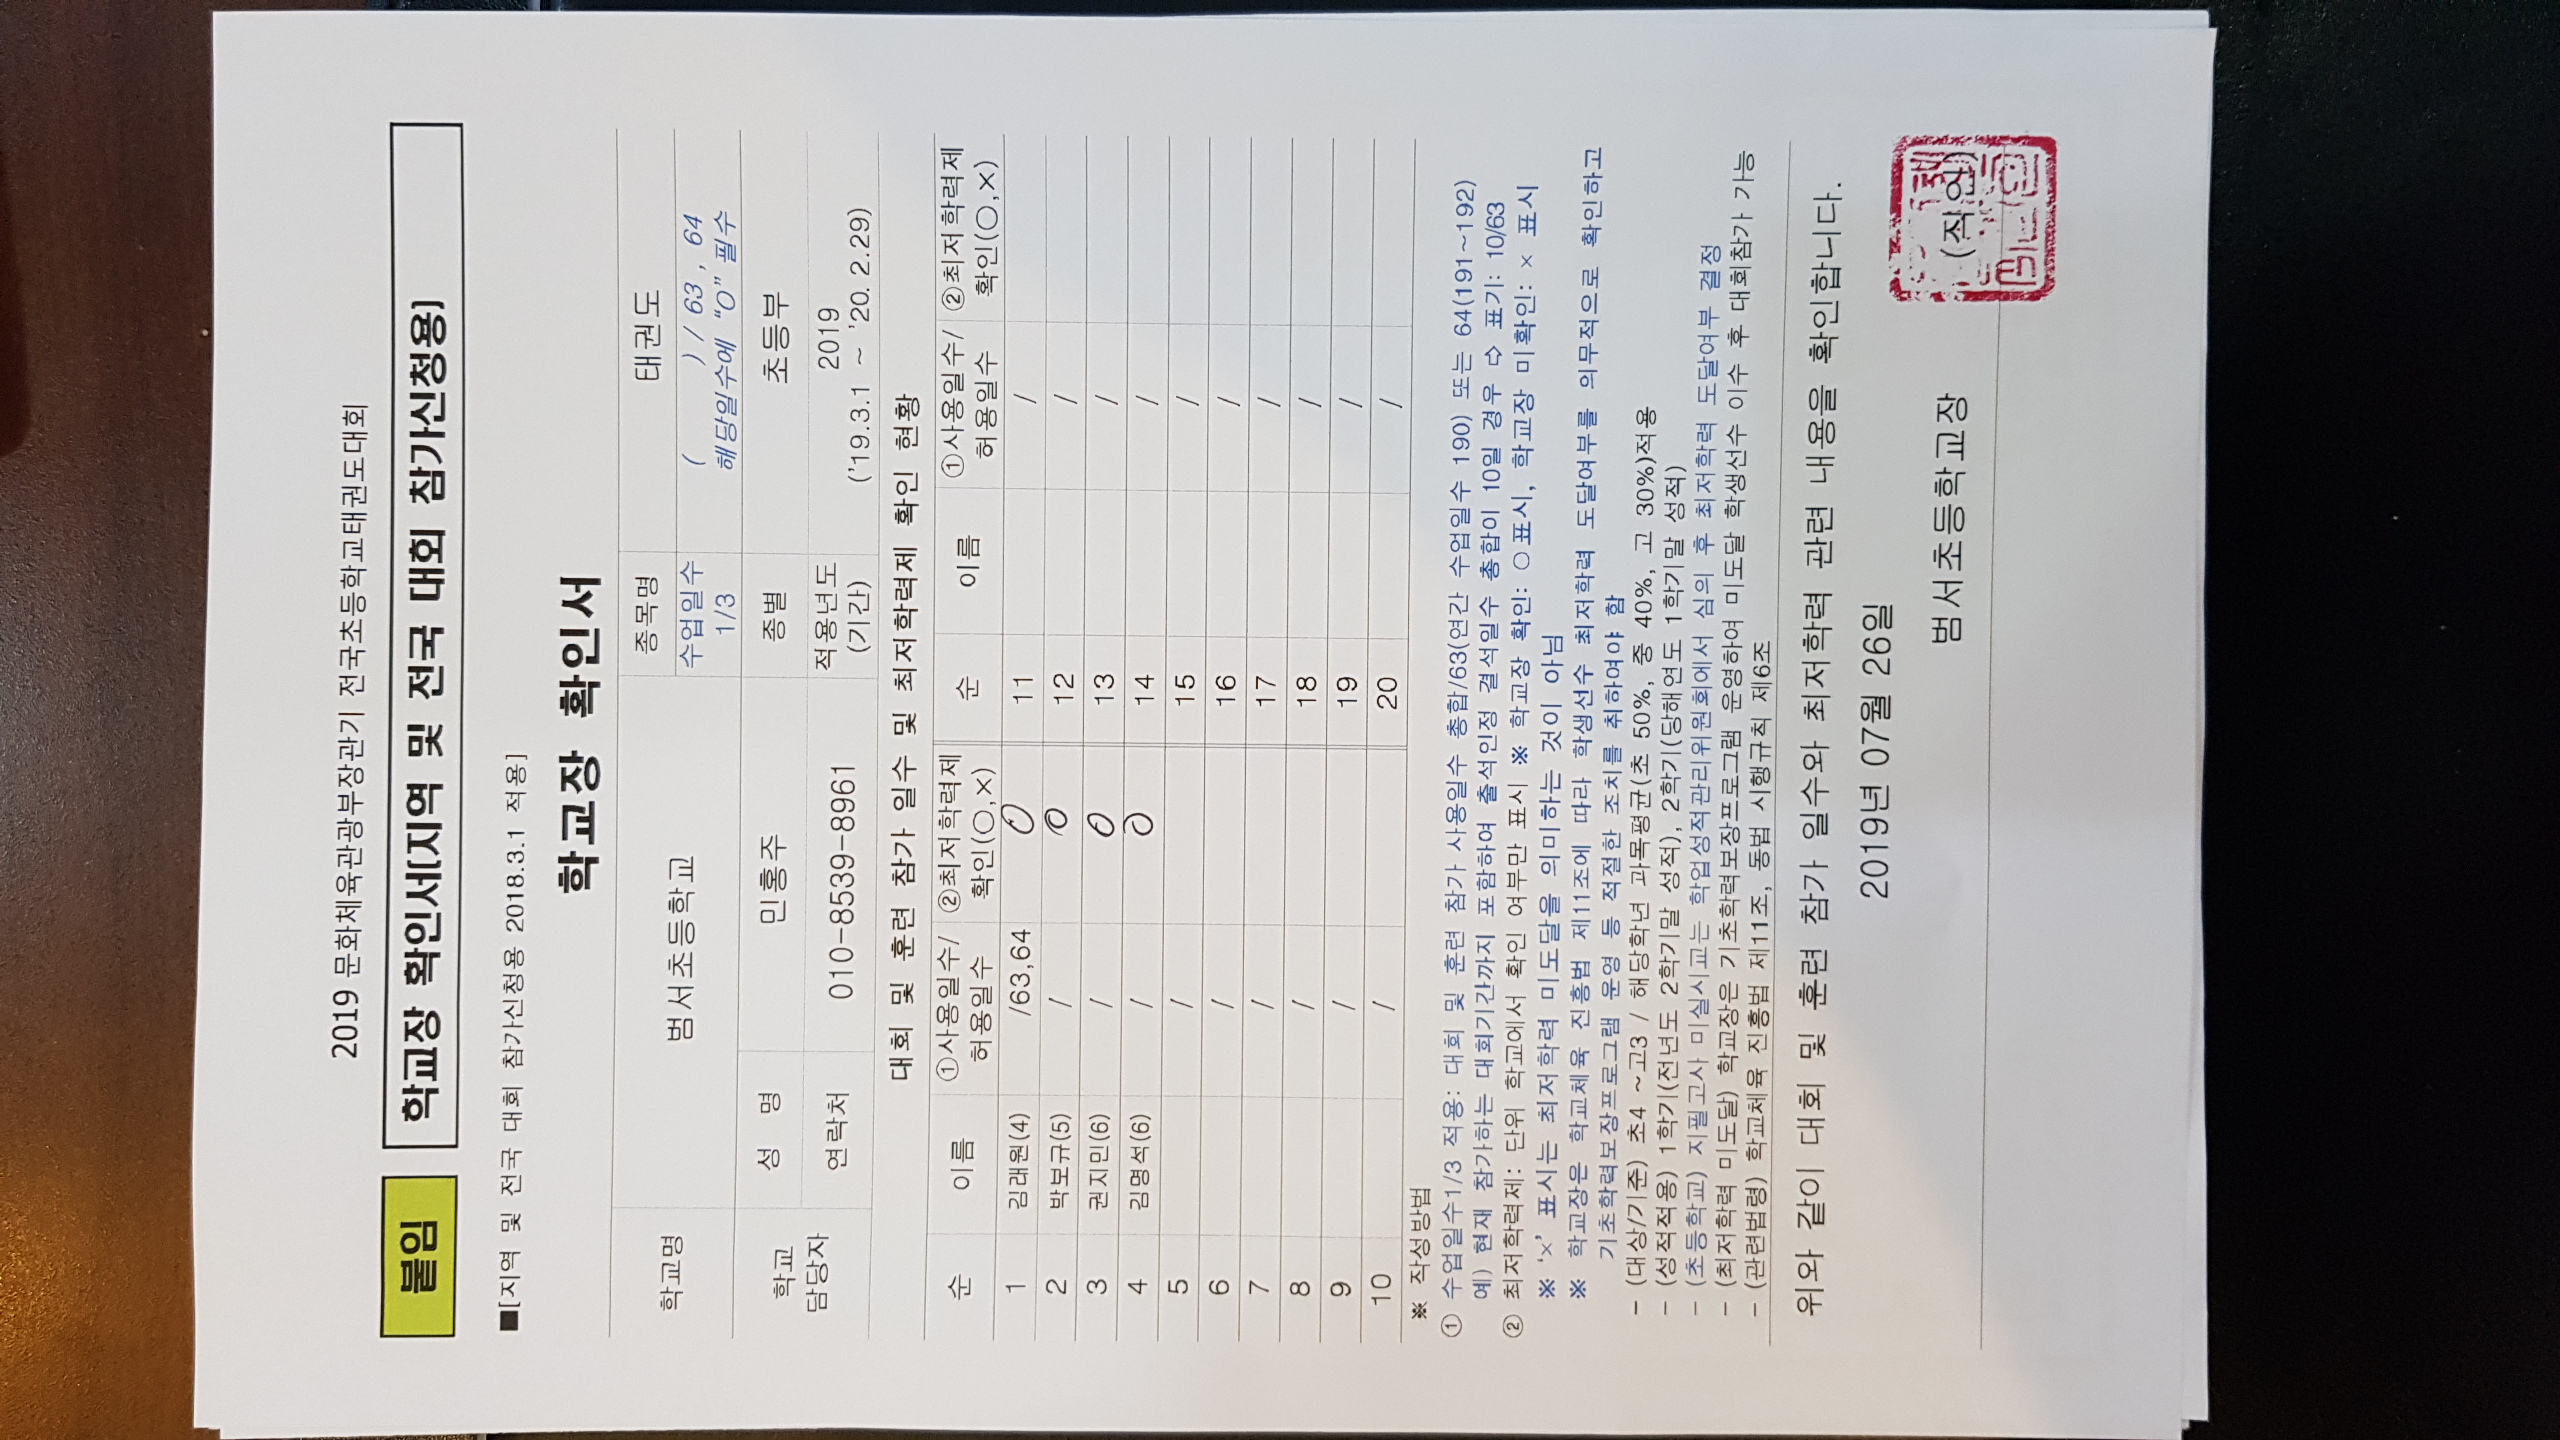 2019 문화체육관광부장관기 전국초등학교태권도대회
붙임 학교장 확인서[지역 및 전국 대회 참가신청용]
■[지역 및 전국 대회 참가신청용 2018.3.1 적용]
학교장 확인서
학교명 범서초등학교 종목명 태권도
수업일수 1/3 ( ) / 63 , 64
해당일수에 “O” 필수
학교 담당자 성 명 민홍주 종별 초등부
연락처 010-8539-8961 적용년도 (기간) 2019
('19.3.1 ~ '20. 2.29)
대회 및 훈련 참가 일수 및 최저학력제 확인 현황
순 이름 ①사용일수/허용일수 ②최저학력제 확인(○,×) 순 이름 ①사용일수/허용일수 ②최저학력제 확인(○,×)
1 김래원(4) /63,64 O 11 /
2 박보규(5) / O 12 /
3 권지민(6) / O 13 /
4 김명석(6) / O 14 /
5 / 15 /
6 / 16 /
7 / 17 /
8 / 18 /
9 / 19 /
10 / 20 /
※ 작성방법
① 수업일수1/3 적용: 대회 및 훈련 참가 사용일수 총합/63(연간 수업일수 190) 또는 64(191~192)
예) 현재 참가하는 대회기간까지 포함하여 출석인정 결석일수 총합이 10일 경우 ⇨ 표기: 10/63
② 최저학력제: 단위 학교에서 확인 여부만 표시 ※ 학교장 확인: ○표시, 학교장 미확인: × 표시
※ ‘×’ 표시는 최저학력 미도달을 의미하는 것이 아님
※ 학교장은 학교체육 진흥법 제11조에 따라 학생선수 최저학력 도달여부를 의무적으로 확인하고
기초학력보장프로그램 운영 등 적절한 조치를 취하여야 함
- (대상/기준) 초4 ~고3 / 해당학년 과목평균(초 50%, 중 40%, 고 30%)적용
- (성적적용) 1학기(전년도 2학기말 성적), 2학기(당해연도 1학기말 성적)
- (초등학교) 지필고사 미실시교는 학업성적관리위원회에서 심의 후 최저학력 도달여부 결정
- (최저학력 미도달) 학교장은 기초학력보장프로그램 운영하여 미도달 학생선수 이수 후 대회참가 가능
- (관련법령) 학교체육 진흥법 제11조, 동법 시행규칙 제6조
위와 같이 대회 및 훈련 참가 일수와 최저학력 관련 내용을 확인합니다.
2019년 07월 26일
범서초등학교장 (직인)